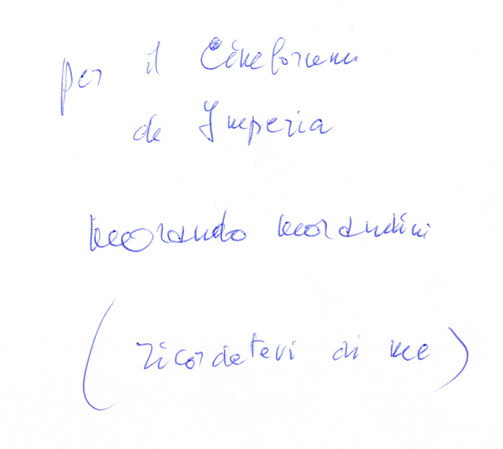 per il Cineforum
de Imperia
Morando Morandini
(ricordatevi di me)